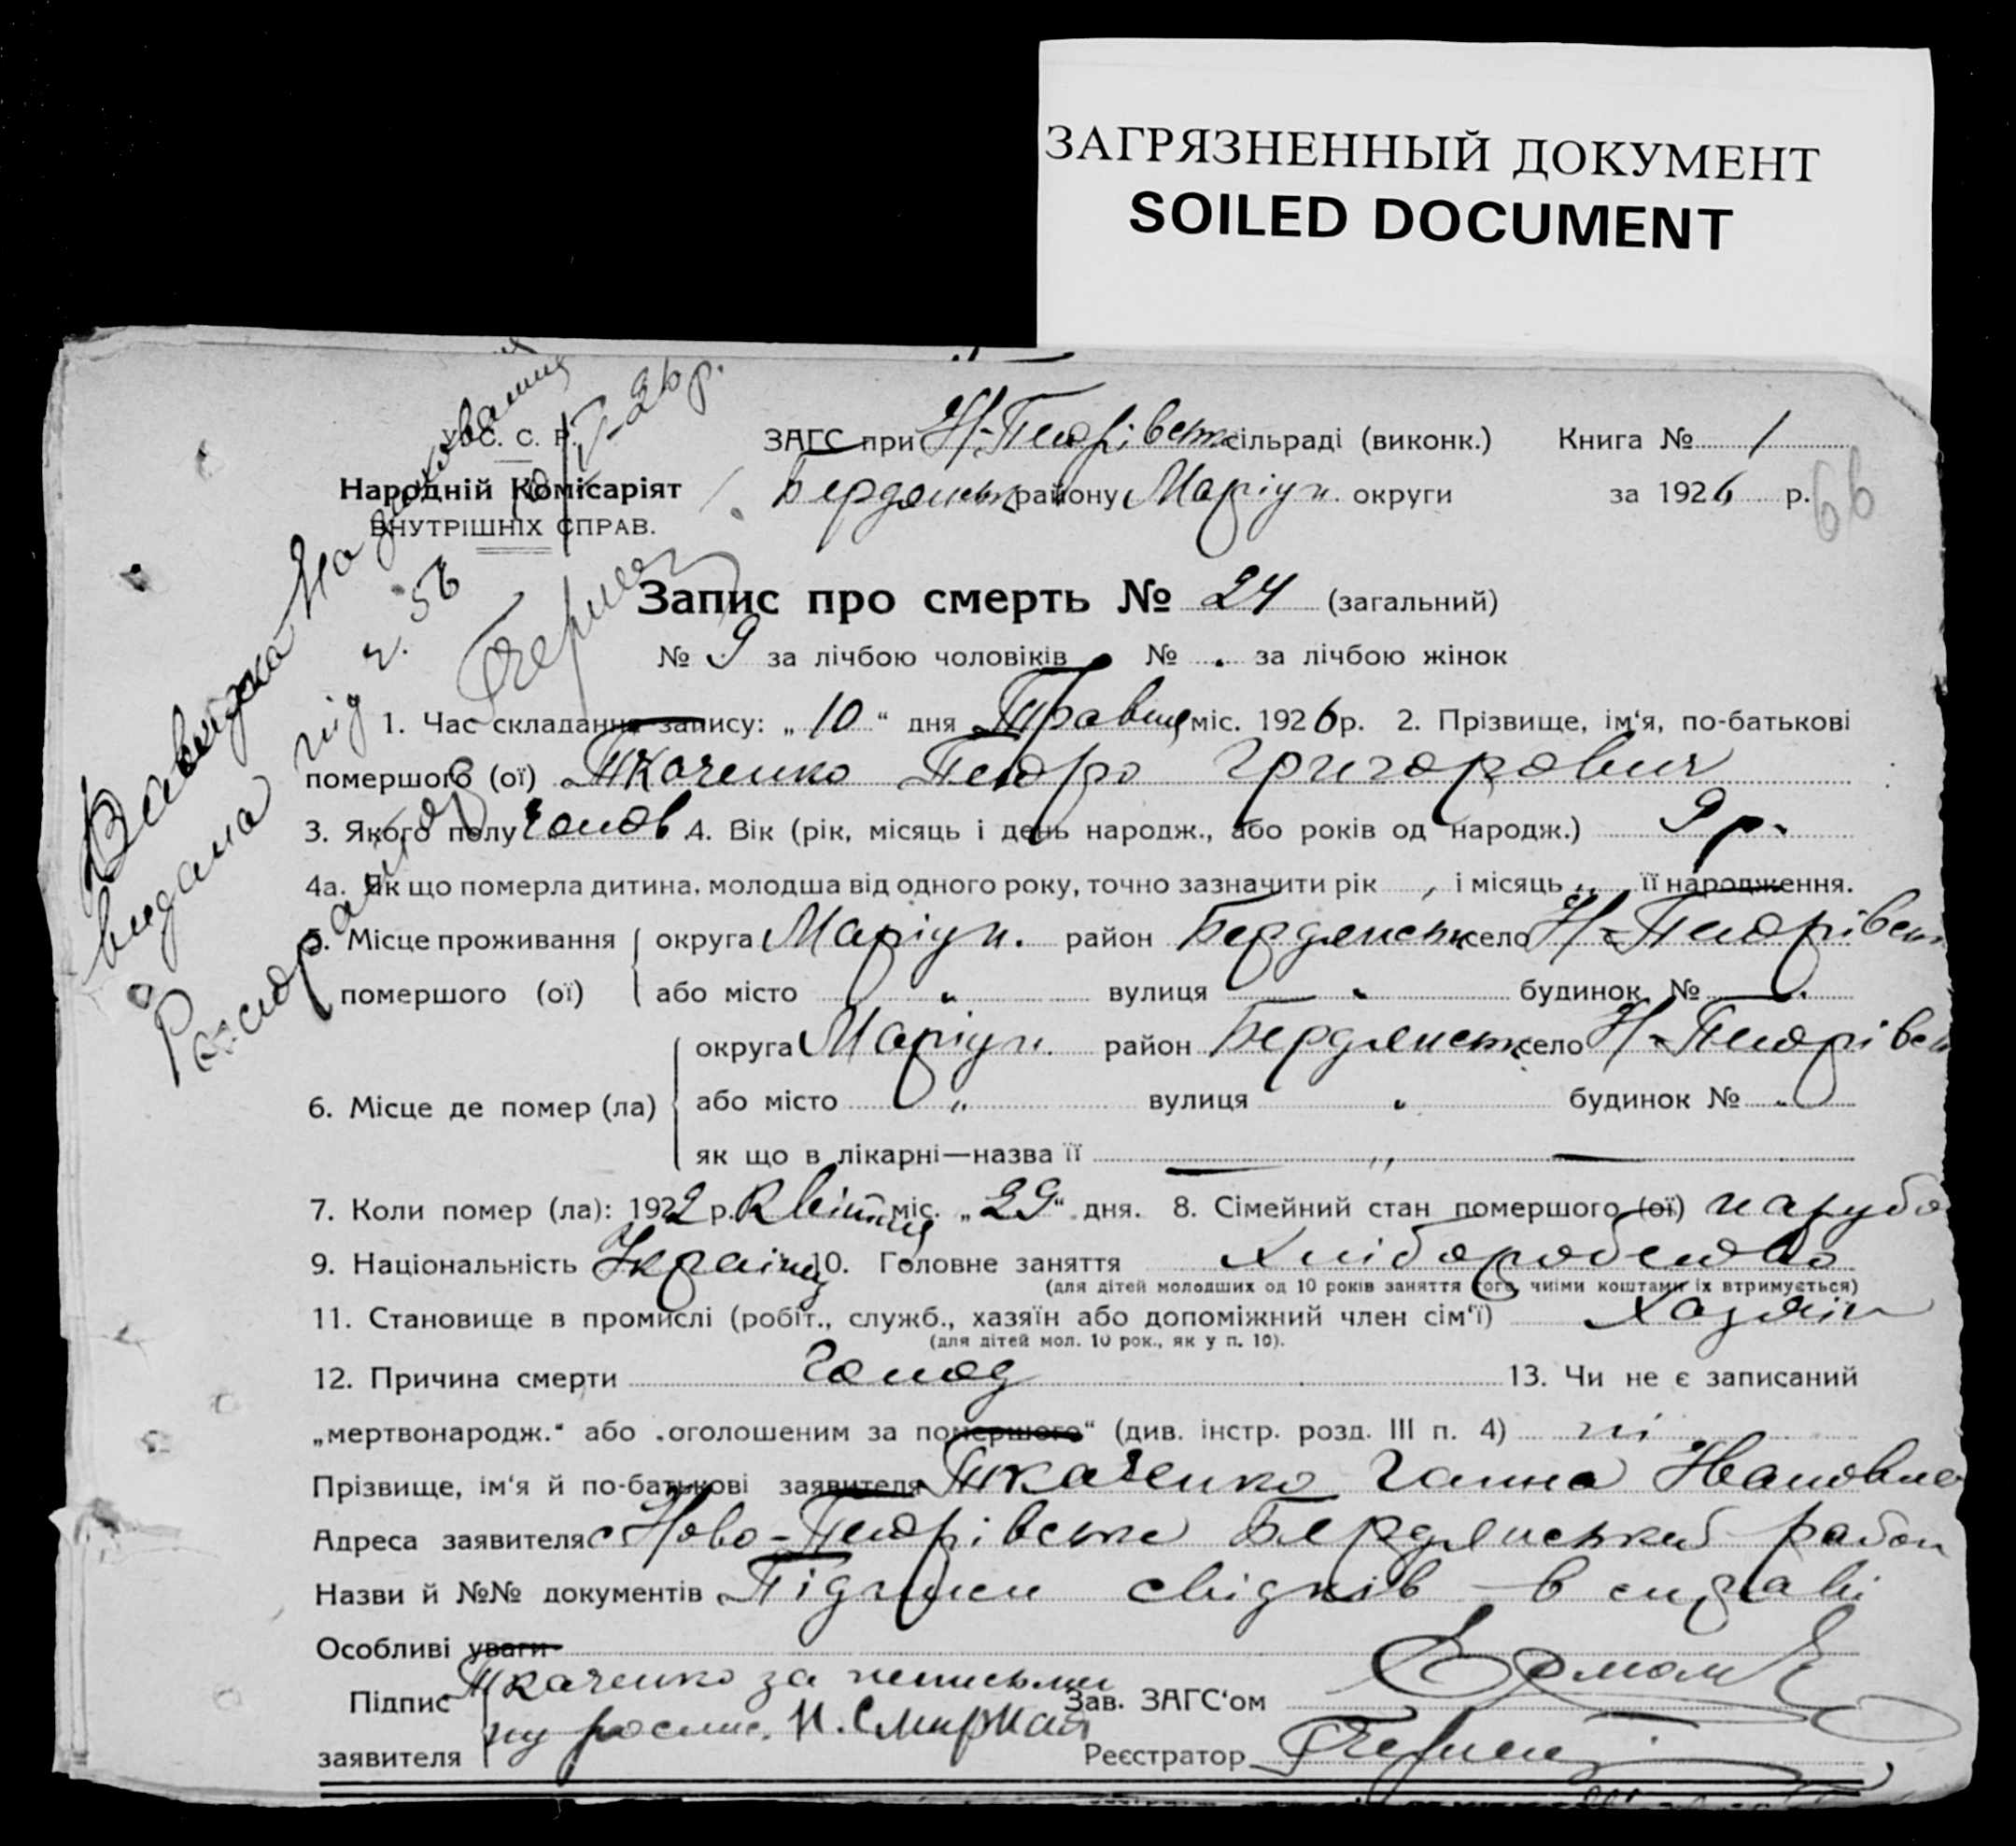 ЗАГРЯЗНЕННЫЙ ДОКУМЕНТ
SOILED DOCUMENT
У. С. С. Р.
Народній Комісаріят
ВНУТРІШНІХ СПРАВ.
ЗАГС при Н-Петрівськ сільраді (виконк.) Книга № 1
Бердянськ району Маріуп. округи за 1926 р.
66
Запис про смерть № 24 (загальний)
№ 9 за лічбою чоловіків № за лічбою жінок
1. Час складання запису: „ 10 “ дня Травня міс. 1926 р. 2. Прізвище, ім‘я, по-батькові
помершого (ої) Ткаченко Петро Григорович
3. Якого полу чолов 4. Вік (рік, місяць і день народж., або років од народж.) 9 р.
4а. Як що померла дитина, молодша від одного року, точно зазначити рік , і місяць „ її народження.
5. Місце проживання округа Маріуп. район Бердянськ село Н-Петрівськ
помершого (ої) або місто „ вулиця „ будинок №
округа Маріуп. район Бердянськ село Н-Петрівськ
6. Місце де помер (ла) або місто „ вулиця „ будинок № „
як що в лікарні—назва її „
7. Коли помер (ла): 1922 р. Квітня міс. „ 29 “ дня. 8. Сімейний стан помершого (ої) парубо
9. Національність Українец 10. Головне заняття хліборобство
(для дітей молодших од 10 років заняття того, чиїми коштами їх втримується)
11. Становище в промислі (робіт., служб., хазяїн або допоміжний член сім‘ї) хазяїн
(для дітей мол. 10 рок., як у п. 10).
12. Причина смерти Голод 13. Чи не є записаний
„мертвонародж.“ або „оголошеним за помершого“ (див. інстр. розд. III п. 4) ні
Прізвище, ім‘я й по-батькові заявителя Ткаченко Ганна Ивановна
Адреса заявителя с Ново-Петрівське Бердянський район
Назви й №№ документів Підписи свідків в справі
Особливі уваги
Підпис Ткаченко за неписьмен
ну роспис. Н. Смирная Зав. ЗАГС‘ом
заявителя Реєстратор
Довідка На
видана під ч. 56